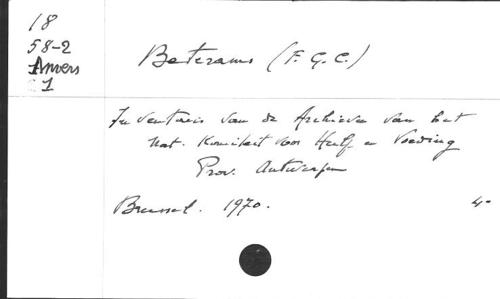 18
58-2
Anvers
1
Beterams (F. G. C.)
Inventaris van de Archieven van het
Nat. Komiteit voor Hulp en Voeding
Prov. Antwerpen
Brussel. 1970.
4º